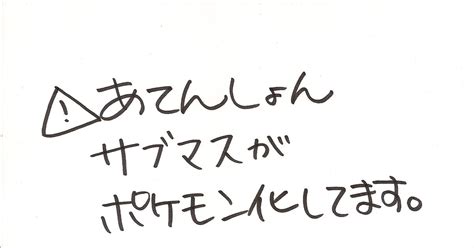 ⚠あてんしょん
サブマスが
ポケモン化してます。